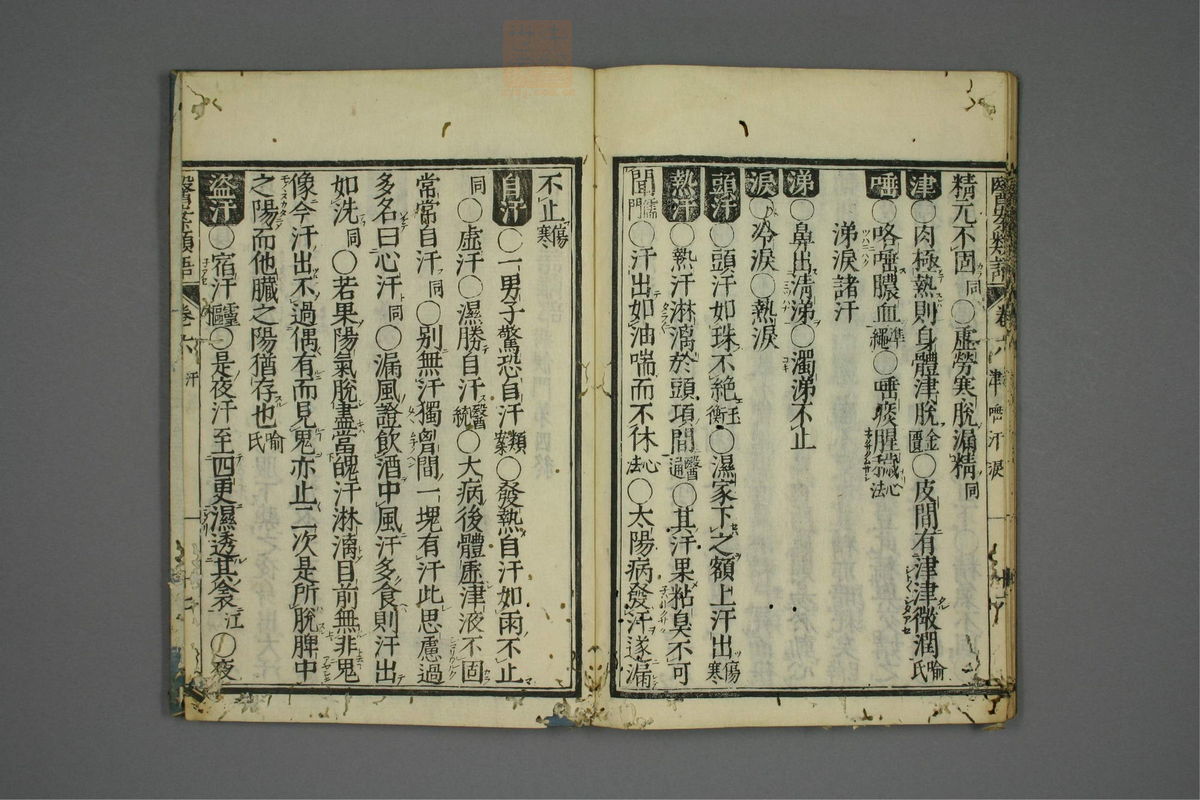 醫案類語 卷六 津 唾 汗 涙
精元不固同○虛勞寒脫漏精同
津○肉極熱則身體津脫金匱○皮間有津津微潤喻氏
唾○咯唾膿血準繩○唾痰腥穢心法
涕涙諸汗
涕○鼻出淸涕○濁涕不止
涙○冷涙○熱涙
頭汗○頭汗如珠不絶玉衡○濕家下之額上汗出傷寒
熱汗○熱汗淋漓於頭項間醫通○其汗果粘臭不可
聞儒門○汗出如油喘而不休心法○太陽病發汗遂漏
不止傷寒
自汗○一男子驚恐自汗類案○發熱自汗如雨不止
同○虛汗○濕勝自汗醫統○大病後體虛津液不固
常常自汗同○別無汗獨胷間一塊有汗此思慮過
多名曰心汗同○漏風證飮酒中風汗多食則汗出
如洗同○若果陽氣脫盡當醜汗淋漓目前無非鬼
像今汗出不過偶有而見鬼亦止二次是所脫脾中
之陽而他臟之陽猶存也喻氏
盜汗○宿汗○是夜汗至四更濕透其衾江○夜
醫案類語 卷六 汗